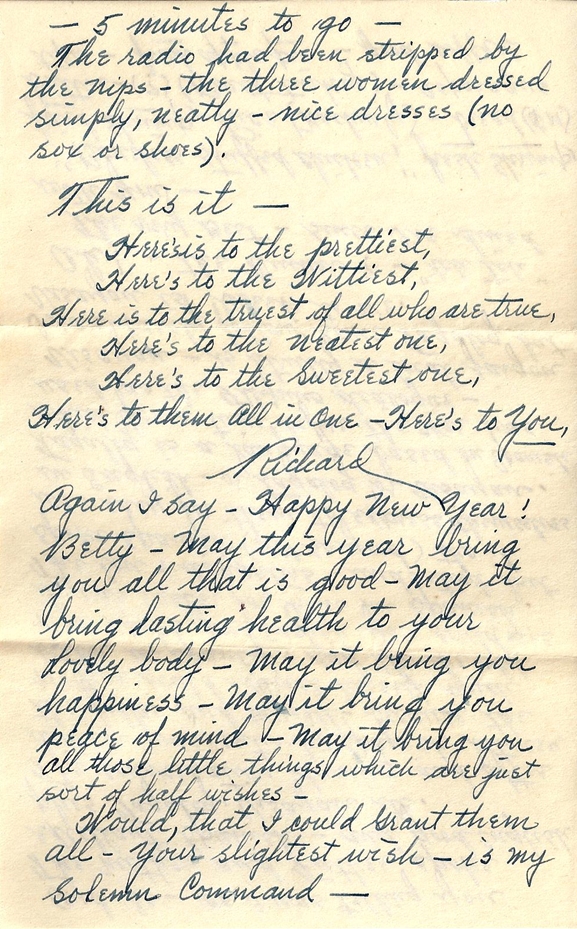 — 5 minutes to go —
The radio had been stripped by
the nips - the three women dressed
simply, neatly - nice dresses (no
sox or shoes).
This is it —
Here'sis to the prettiest,
Here's to the Wittiest,
Here is to the truest of all who are true,
Here's to the neatest one,
Here's to the Sweetest one,
Here's to them All in One - Here's to You,
Richard
Again I say - Happy New Year!
Betty - May this year bring
you all that is good - May it
bring lasting health to your
lovely body - May it bring you
happiness - May it bring you
peace of mind - May it bring you
all those little things which are just
sort of half wishes -
Would, that I could grant them
all - Your slightest wish - is my
Solemn Command —